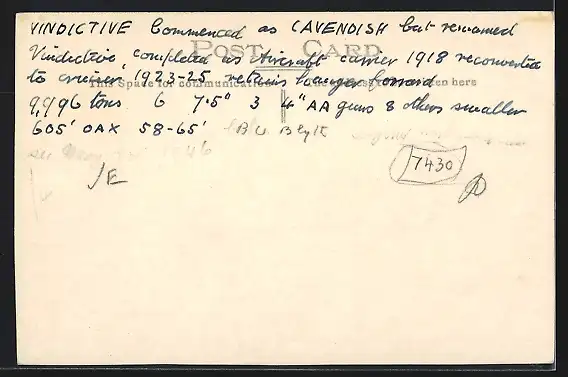 VINDICTIVE Commenced as CAVENDISH but renamed
Vindictive, completed as Aircraft carrier 1918 reconverted
POST CARD
to cruiser 1923-25 retains hangar forward
This Space for communication
en here
9,996 tons 6 7.5" 3 4" AA guns 8 others smaller
605' OAX 58-65' B U Blyth
1946
7430
/E